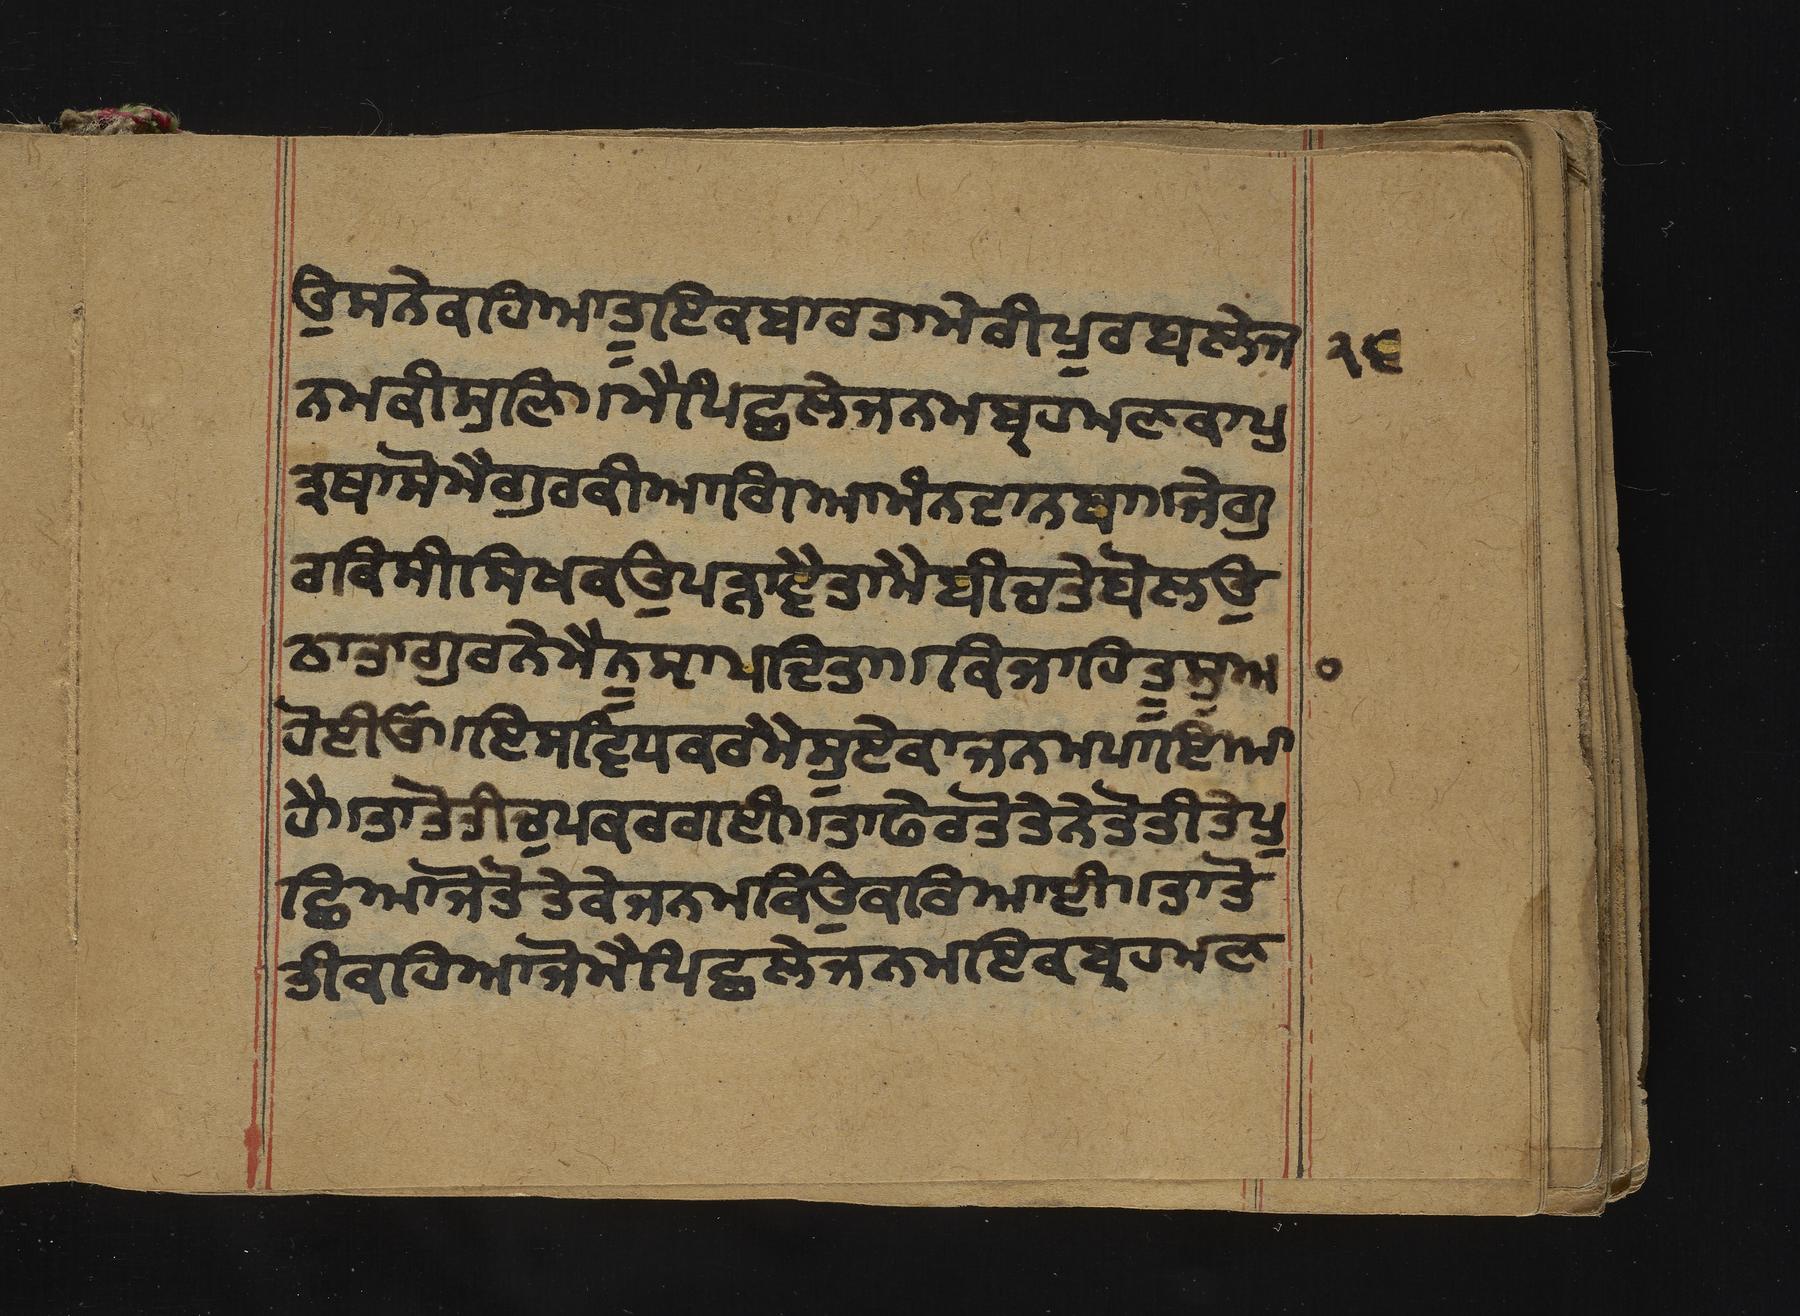 ਉਸਨੇਕਹਿਆਤੂਇਕਬਾਰਤਾਮੇਰੀਪੁਰਬਲੇਜ ੨੯
ਨਮਕੀਸੁਣਿ।ਮੈਪਿਛਲੇਜਨਮਬ੍ਰਹਮਣਕਾਪੁ
ਤ੍ਰਥਾਸੋਮੈਗੁਰਕੀਆਗਿਆਮੰਨਦਾਨਥਾ।ਜੇਗੁ
ਰਕਿਸੀਸਿਖਕਉਪੜ੍ਹਾਵੈਤਾਮੈਬੀਚਤੇਬੋਲਉ
ਠਾਤਾਗੁਰਨੇਮੈਨੂਸਾਪਦਿਤਾ।ਕਿਜਾਹਿਤੂਸੂਅ ੦
ਹੋਈਓ।ਇਸਬਿਧਕਰਮੈਸੂਏਕਾਜਨਮਪਾਇਆ
ਹੈ।ਤਾਤੋਤੀਚੁਪਕਰਗਈ।ਤਾਫੇਰਤੋਤੇਨੇਤੋਤੀਤੇਪੁ
ਛਿਆਜੋਤੋਤੇਕੇਜਨਮਕਿਉਕਰਿਆਈ।ਤਾਤੋ
ਤੀਕਹਿਆਜੋਮੈਪਿਛਲੇਜਨਮਇਕਬ੍ਰਹਮਣ